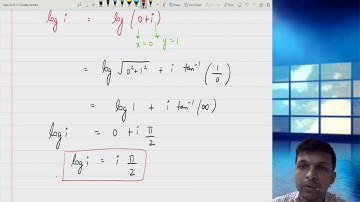 log i = log (0+i)
x=0 y=1
= log √0²+1² + i tan⁻¹ (1/0)
= log 1 + i tan⁻¹ (∞)
log i = 0 + i π/2
log i = i π/2